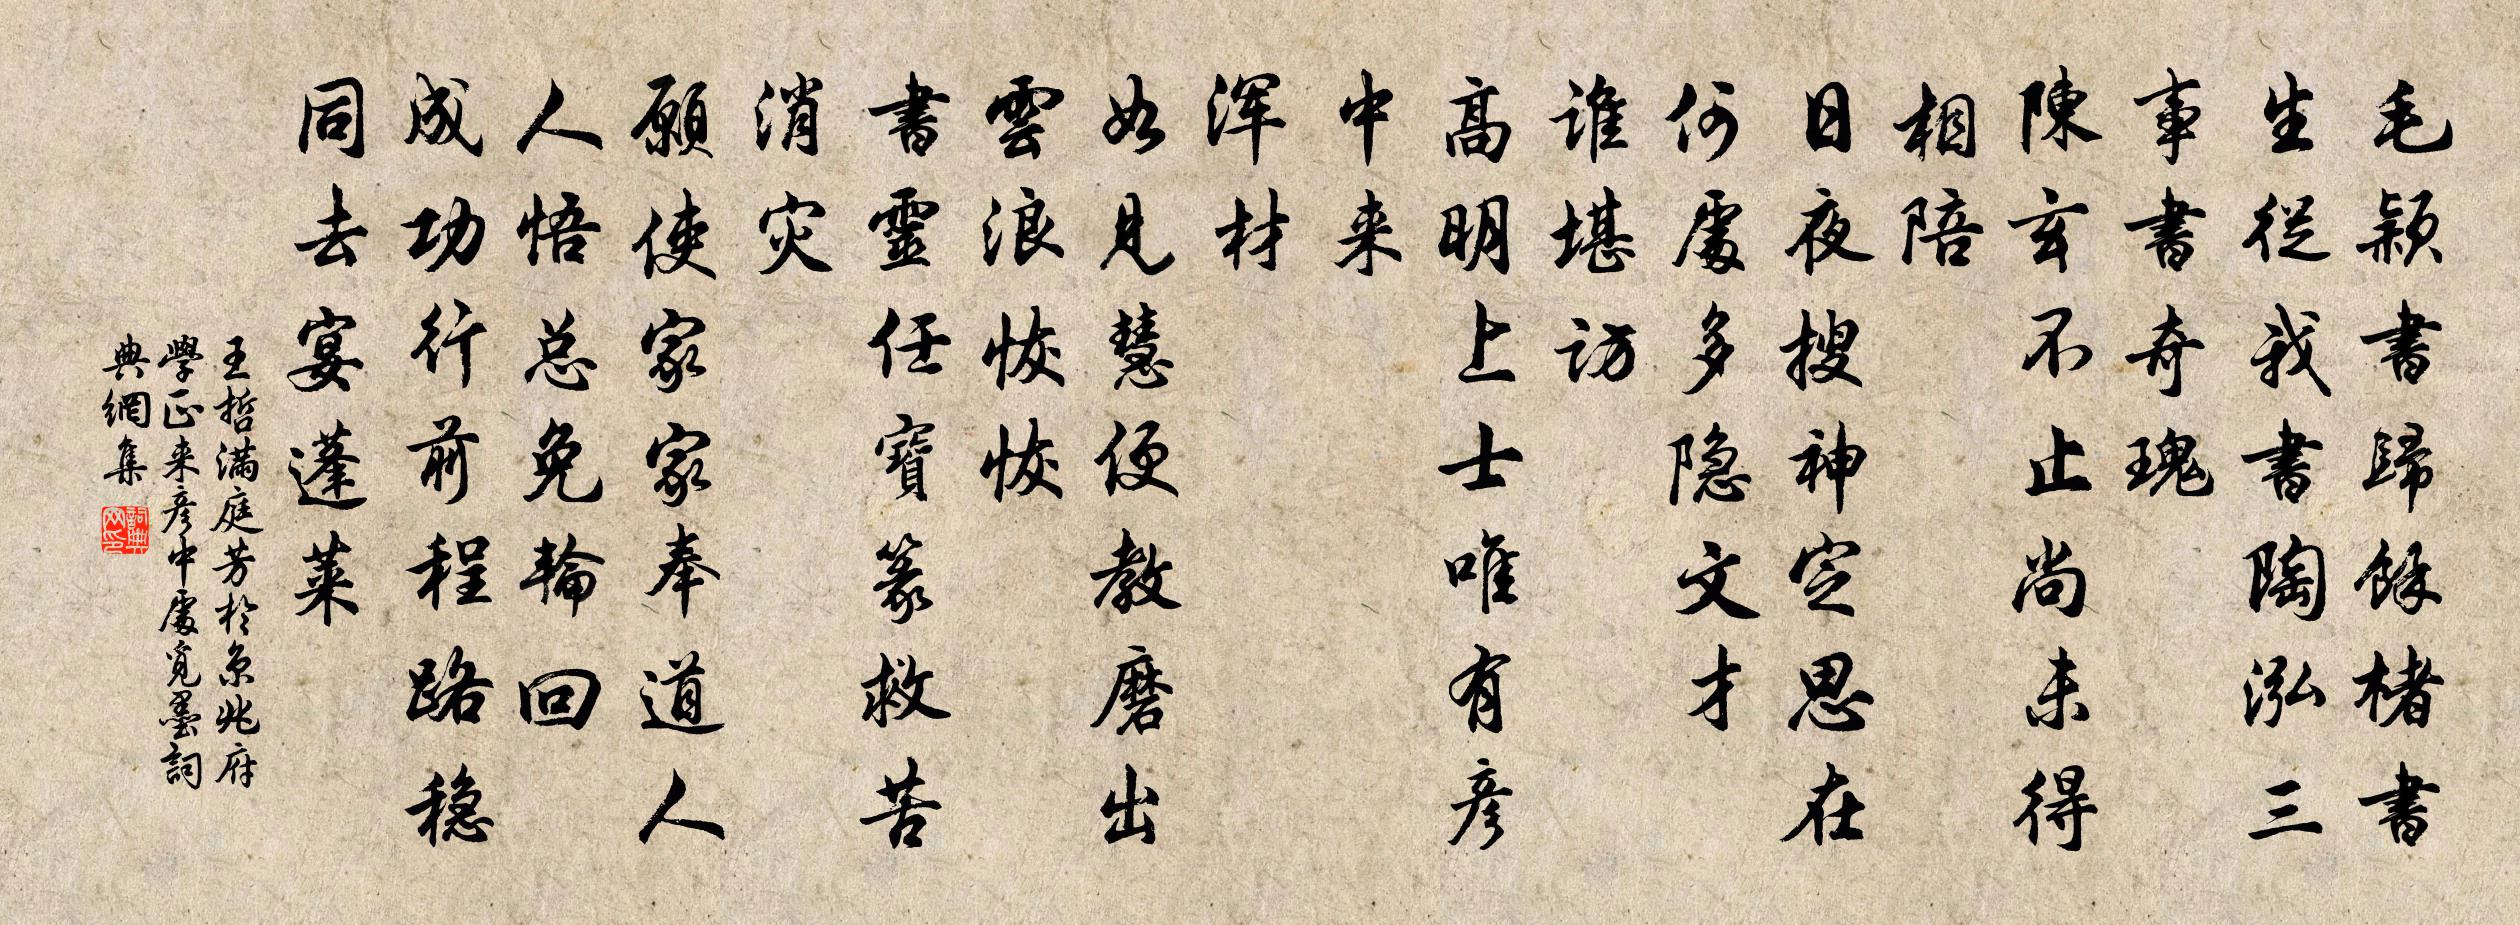 毛颖書歸餘楮書
生從我書陶泓三
事書奇瑰
陳玄不止尚未得
相陪
日夜搜神定思在
何處多隐文才
谁堪访
高明上士唯有彦
中来
浑材
如見慧便教磨出
雲浪恢恢
書靈任寶篆救苦
消灾
願使家家奉道人
人悟总免輪回
成功行前程路穏
同去宴蓬莱
王哲满庭芳於京兆府
學正来彦中處覓墨詞
典網集